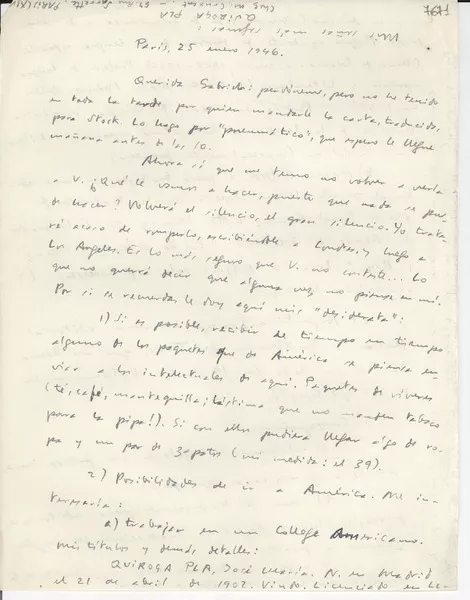 QUIROGA PLA
París, 25 enero 1946.
Querida Gabriela: perdóneme, pero no he tenido
en toda la tarde por quien mandarle la carta, traducida,
para Stock. Lo hago por "pneumático", que espero le llegue
mañana antes de las 10.
Ahora sí que me temo no volver a verla
a V. ¡Qué le vamos a hacer, puesto que nada se pue-
de hacer? Volverá el silencio, el gran silencio. Yo trata-
ré acaso de romperlo, escribiéndole a Londres, y luego a
Los Angeles. Es lo más seguro que V. no conteste... Lo
que no querrá decir que alguna vez no piense en mí.
Por si se recuerda, le doy aquí mis "desiderata":
1) Si es posible, recibir de tiempo en tiempo
alguno de los paquetes que de América se piensa en-
viar a los intelectuales de aquí. Paquetes de víveres
(té, café, mantequilla; lástima que no manden tabaco
para la pipa!). Si con ellos pudiera llegar algo de ro-
pa y un par de zapatos (mi medida: el 39).
2) Posibilidades de ir a América. Me in-
teresaría:
a) trabajar en un College Americano.
Mis títulos y demás detalles:
QUIROGA PLA, José María. N. en Madrid
el 21 de abril de 1902. Viudo. Licenciado en Le-